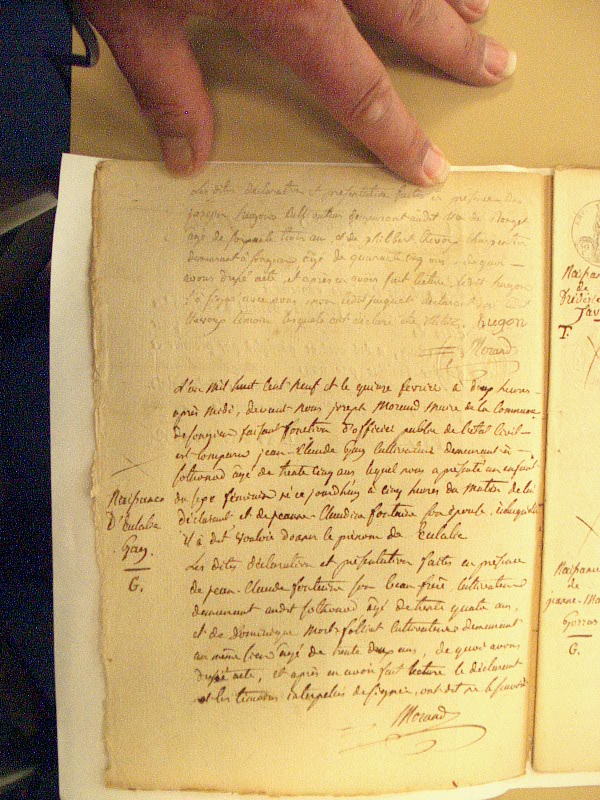 Les dites déclaration et présentation faites en présence de
demeurant audit lieu de
âgé de soixante trois ans et de philibert charpentier
demeurant à songieu âgé de quarante cinq ans de quoi
avons dressé acte, et après en avoir fait lecture ledit hugon
l'a signé avec nous, non ledit declarant
temoin lesquels ont déclaré hugon
Morand
L'an mil huit cent neuf et le quinze février à deux heures
après midi, devant nous joseph Morand Maire de la Commune
de songieu faisant fonction d'officier public de l'état Civil
est comparu jean-Claude Gay Cultivateur demeurant à
sothonod âgé de trente cinq ans lequel nous a présenté un enfant
du sexe féminin né ce jourdhuy à cinq heures du matin de lui
déclarant et de jeanne-Claudine fontaine son épouse, auquel
il a dit vouloir donner le prénom de Eulalie
Naissance
D'Eulalie
Gay.
G.
Les dites déclaration et présentation faites en présence
de jean-Claude fontaine son beau frère, cultivateur
demeurant audit sothonod âgé de trente quatre ans,
et de Dominique cultivateur demeurant
au même lieu âgé de trente deux ans, de quoi avons
dressé acte, et après en avoir fait lecture le déclarant
et les témoins interpelés de signer, ont dit ne le savoir
Morand
Naissance
de
T.
Naissance
de
jeanne-Ma
G.